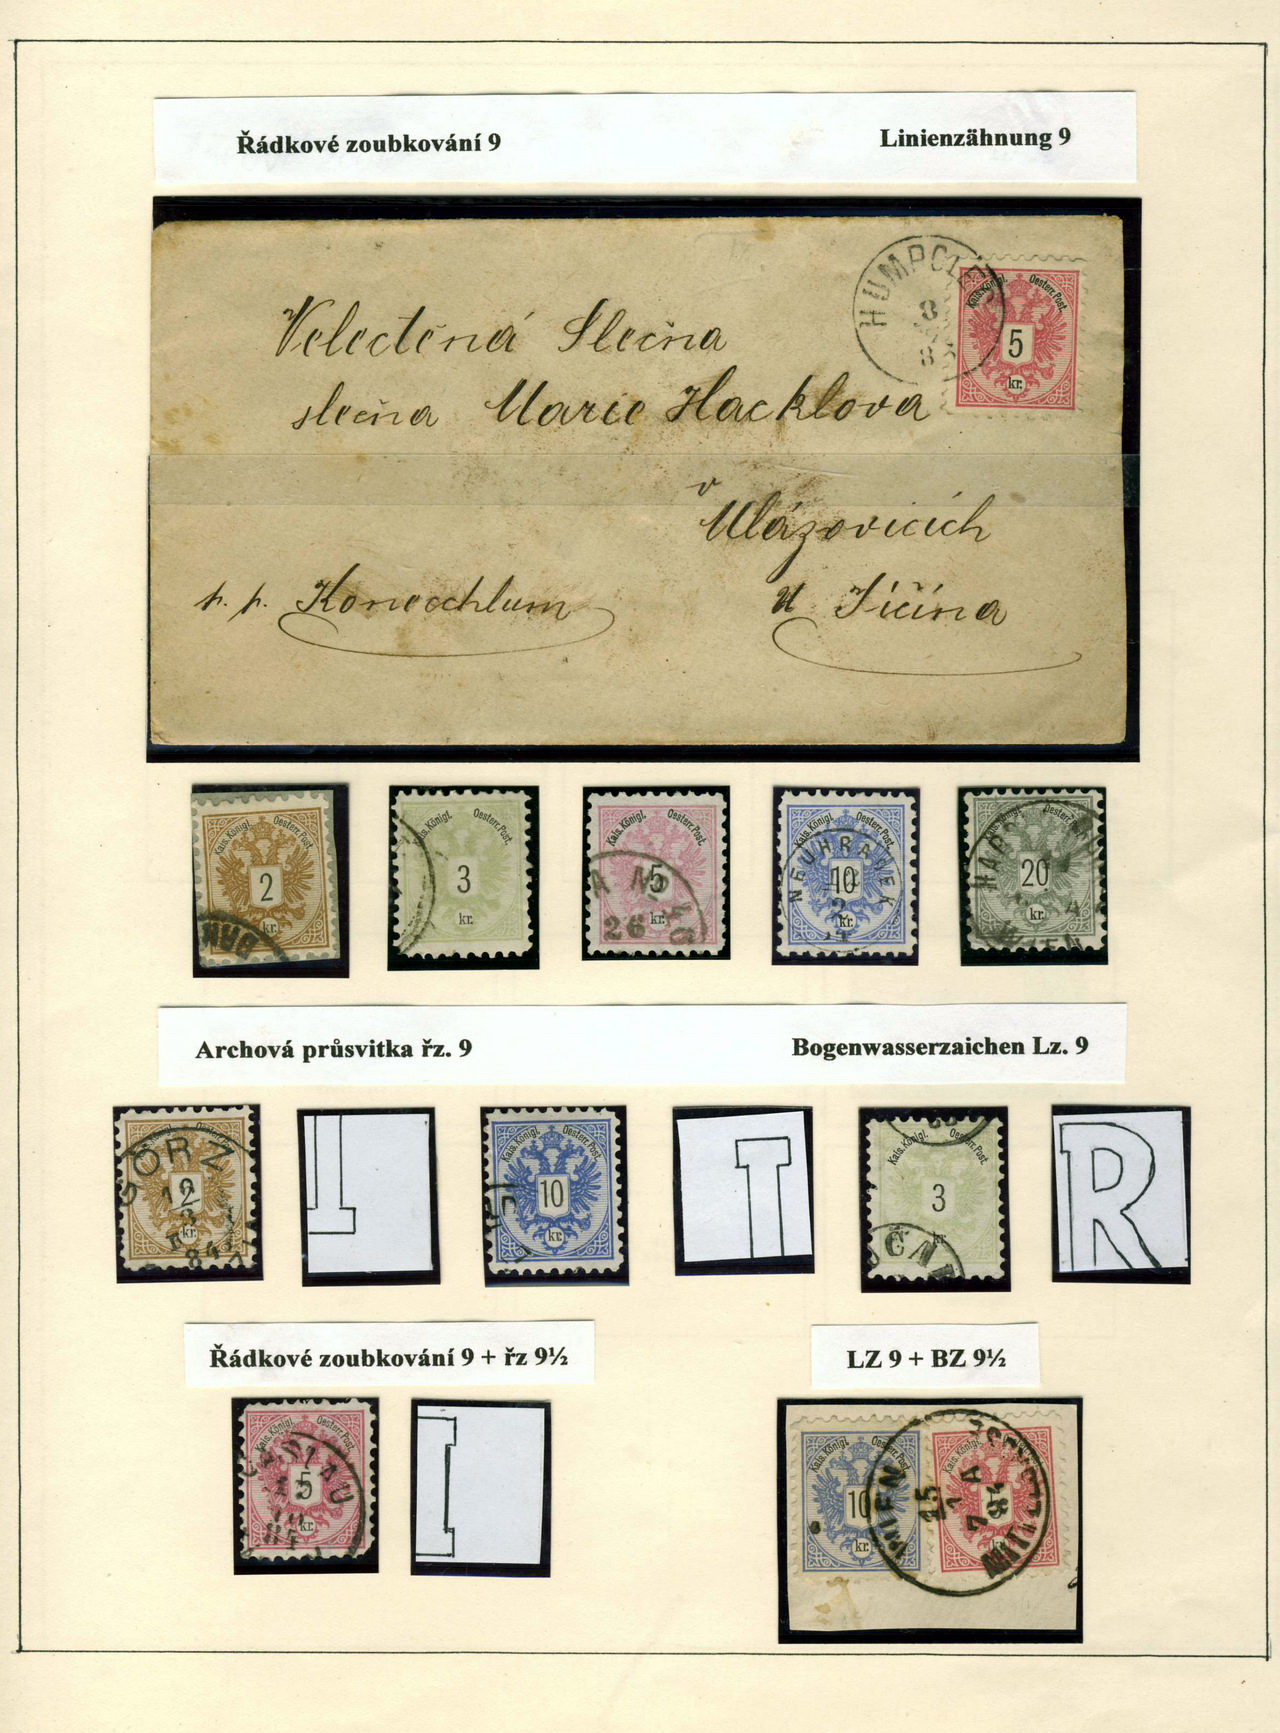 Řádkové zoubkování 9
Linienzähnung 9
HUMPOLEC
8
Kais. Königl. Oesterr. Post.
5
kr.
Velectěná Slečna
slečna Marie Hacklova
v
Ulázovicích
p. p. Konecchlum
u Jičína
2
kr.
Kais. Königl. Oesterr. Post.
3
kr.
Kais. Königl. Oesterr. Post.
5
kr.
26
Kais. Königl. Oesterr. Post.
10
kr.
NEUHRADEK
Kais. Königl. Oesterr. Post.
20
kr.
WIEN
Archová průsvitka řz. 9
Bogenwasserzaichen Lz. 9
GÖRZ
12
3
84
kr.
I
Kais. Königl. Oesterr. Post.
10
kr.
T
Kais. Königl. Oesterr. Post.
3
kr.
R
Řádkové zoubkování 9 + řz 9½
LZ 9 + BZ 9½
Kais. Königl. Oesterr. Post.
5
kr.
I
Kais. Königl. Oesterr. Post.
10
kr.
WIEN
15
7 A
84